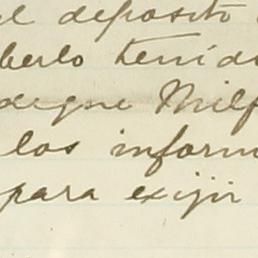 el deposito
berlo tenid
degne Milf
los inform
para exijir